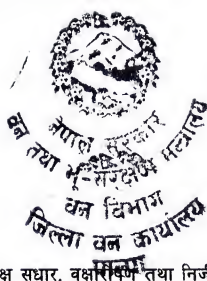 नेपाल सरकार
वन तथा भू-संरक्षण मन्त्रालय
वन विभाग
जिल्ला वन कार्यालय
क्ष सधार, वक्षारोपण तथा निजी